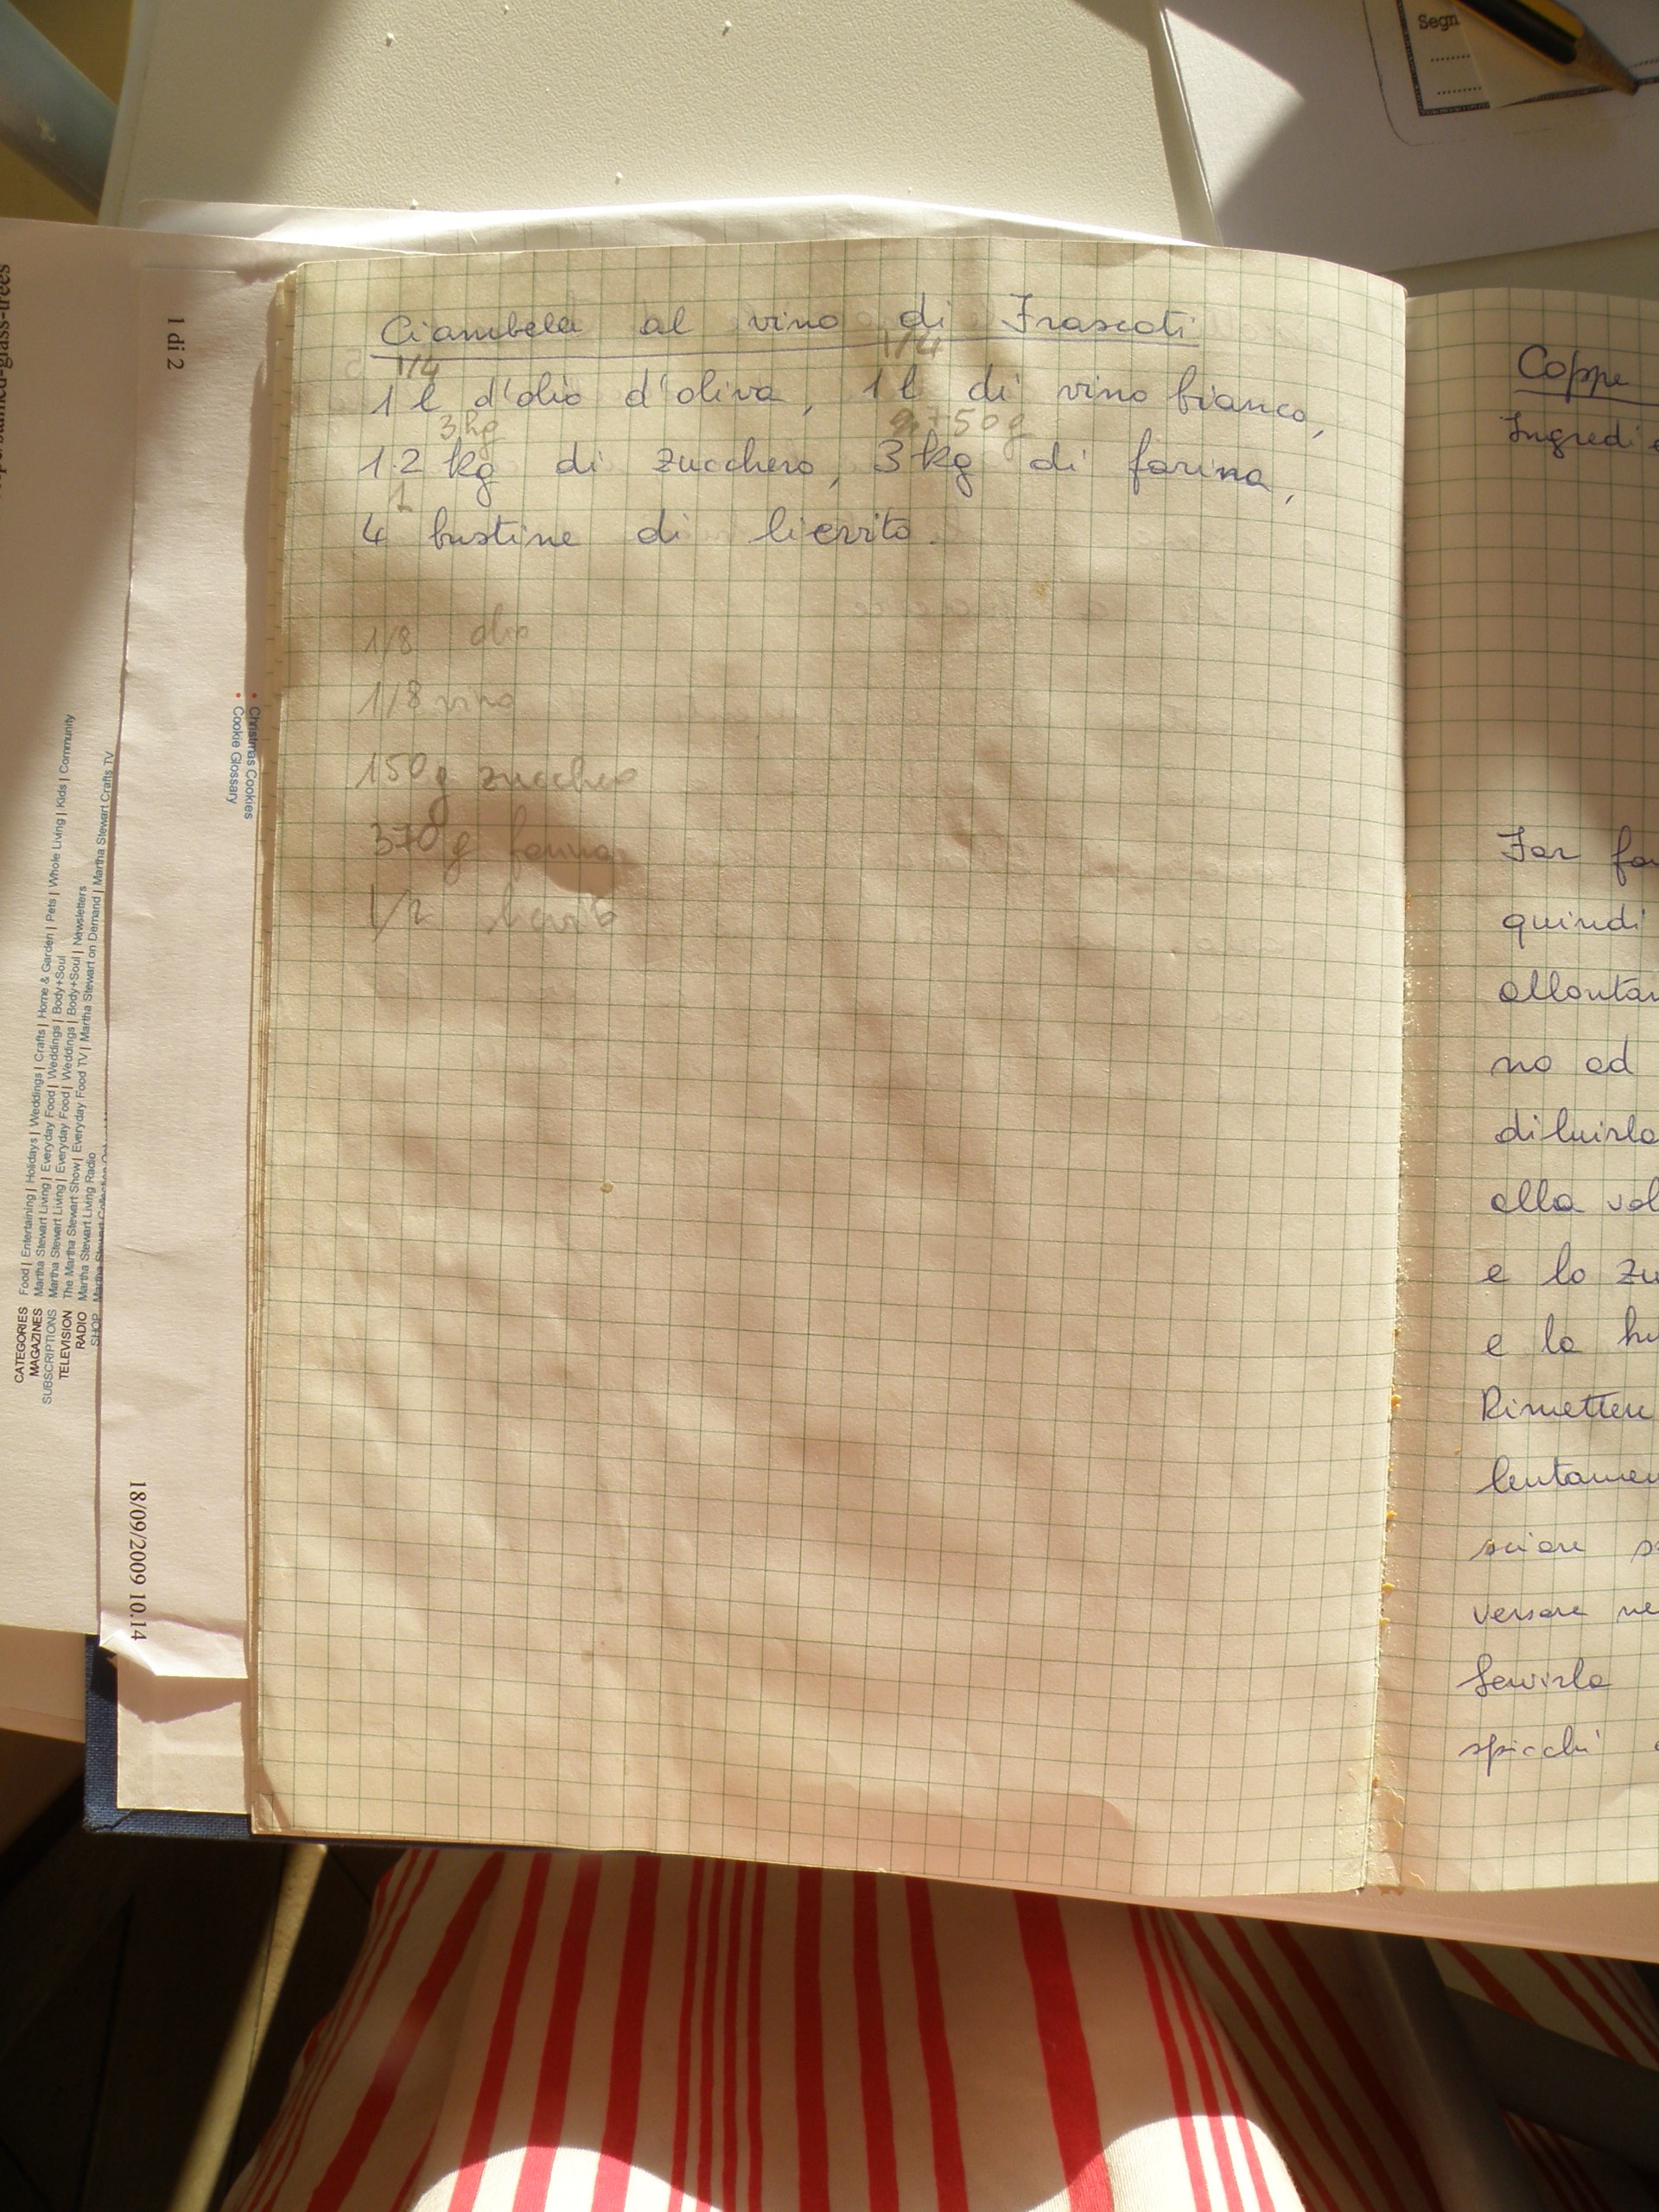 Segn
Ciambela al vino di Frascati
1/4 1/4
1 l d'olio d'oliva, 1 l di vino bianco,
3hg 750g
1.2 kg di zucchero, 3 kg di farina,
1
4 bustine di lievito.
1/8 olio
1/8 vino
150g zucchero
370g farina
1/2 lievito
Coppe
Ingredie
Far fa
quindi
allontan
no ad
diluirla
alla vol
e lo zu
e la
Rimettere
lentamen
sciare s
versare ne
Servirla
spicchi
1 di 2
• Christmas Cookies
• Cookie Glossary
18/09/2009 10.14
CATEGORIES Food | Entertaining | Holidays | Weddings | Crafts | Home & Garden | Pets | Whole Living | Kids | Community
MAGAZINES Martha Stewart Living | Everyday Food | Weddings | Body+Soul
SUBSCRIPTIONS Martha Stewart Living | Everyday Food | Weddings | Body+Soul | Newsletters
TELEVISION The Martha Stewart Show | Everyday Food TV | Martha Stewart on Demand | Martha Stewart Crafts TV
RADIO Martha Stewart Living Radio
SHOP Martha Stewart Collection
-glass-trees